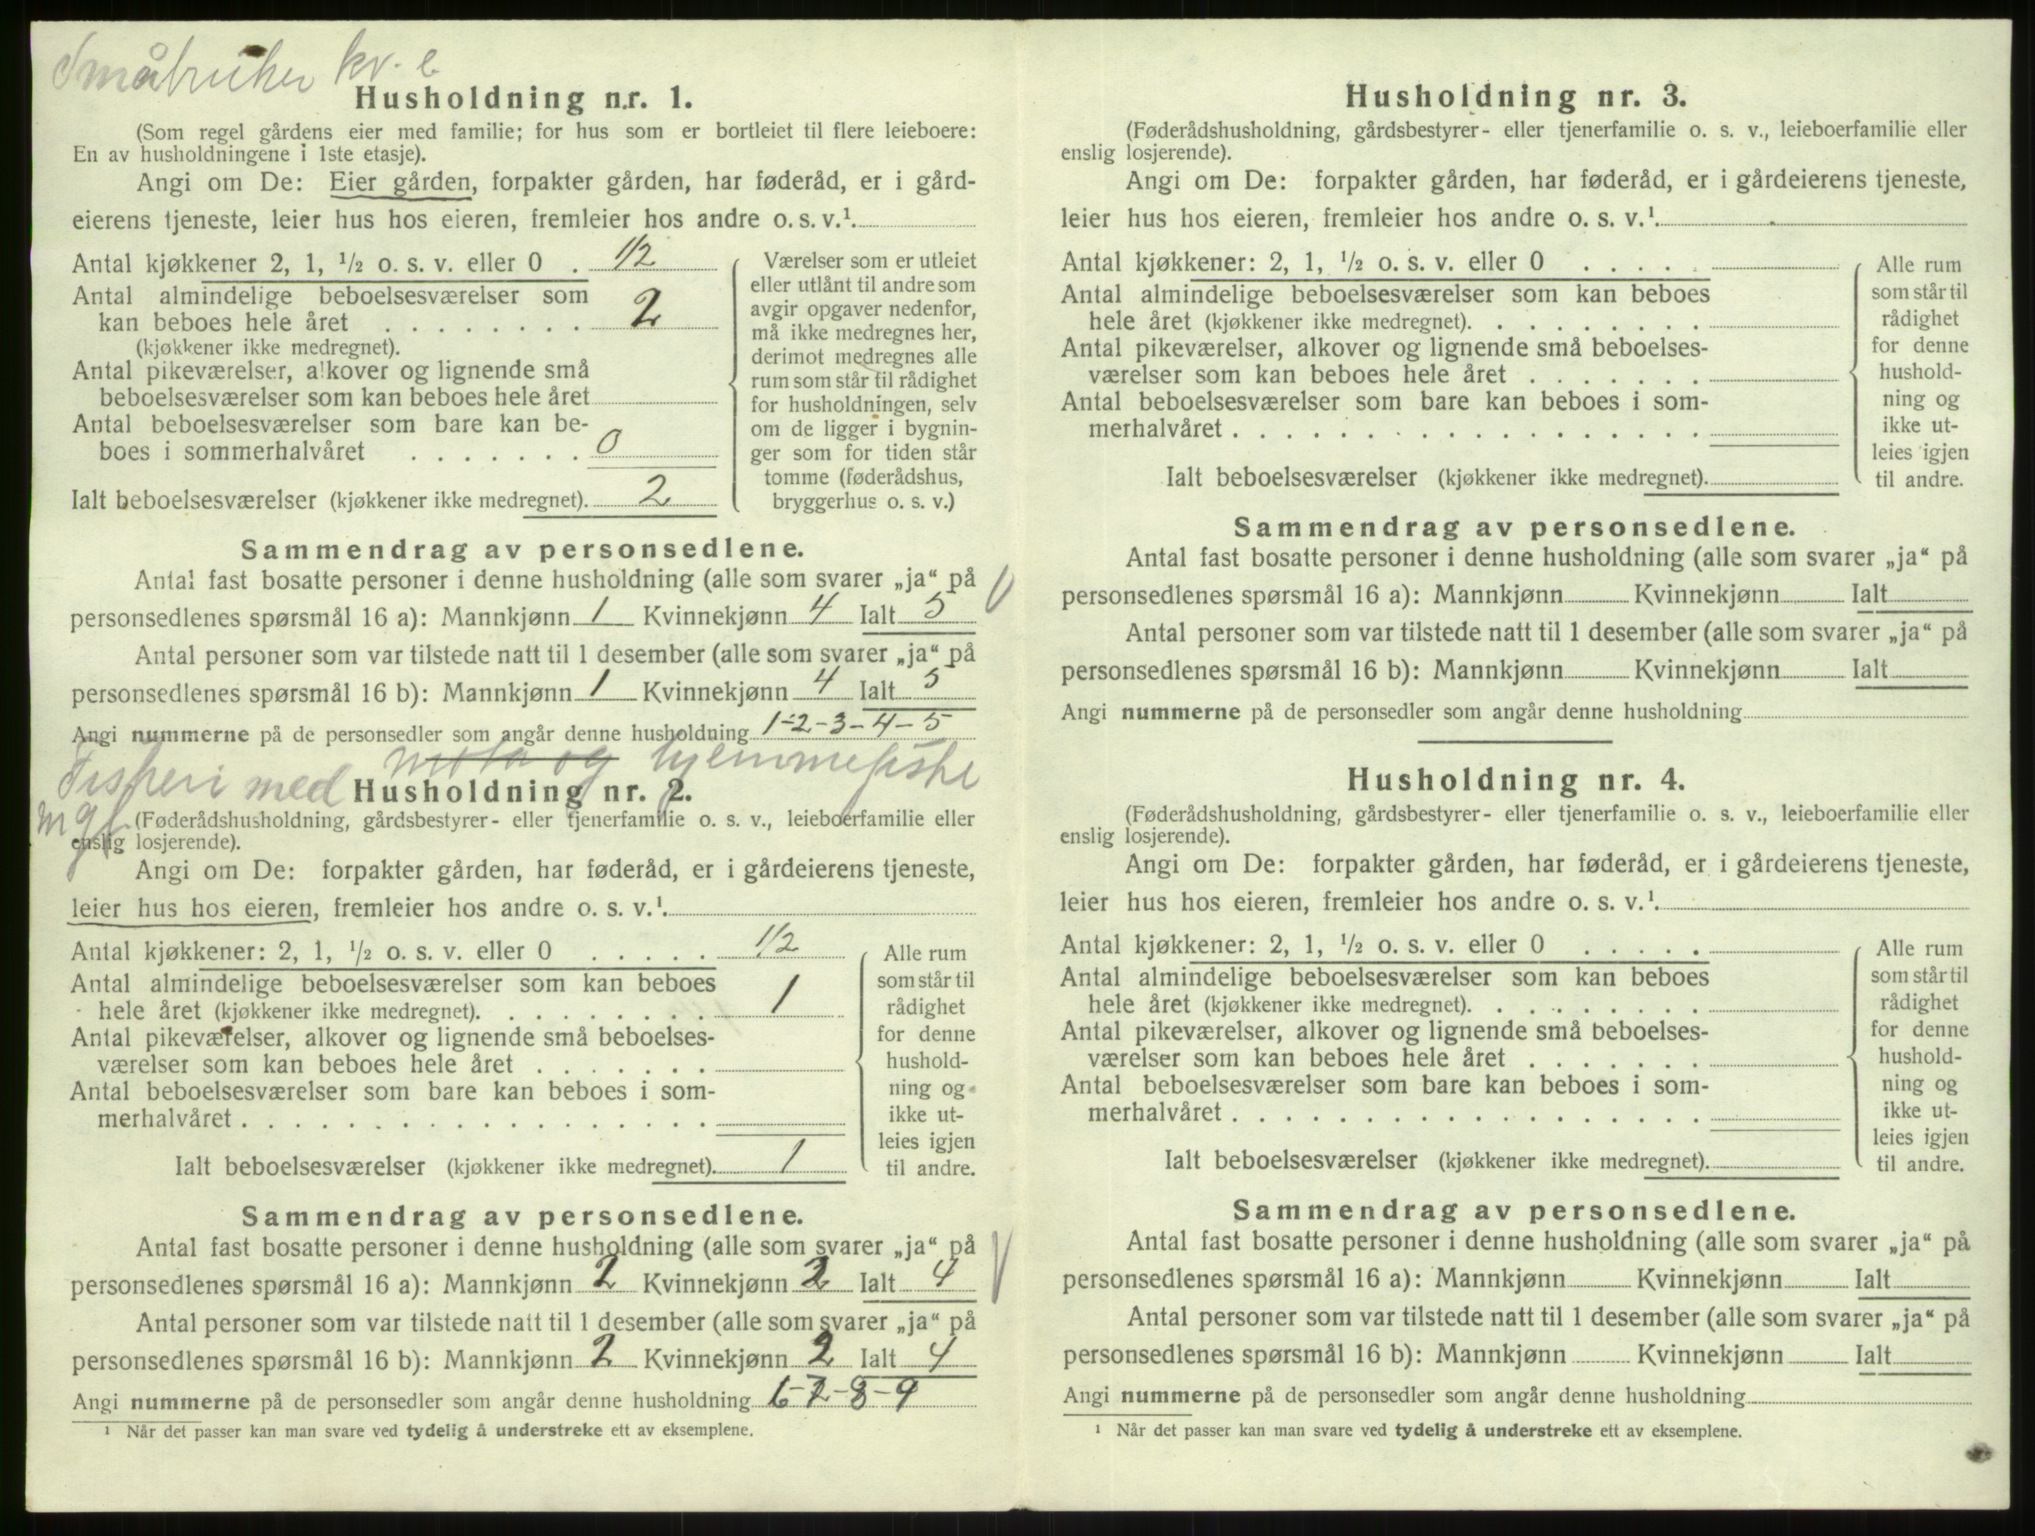 Småbruker kv. e
Husholdning nr. 1.
(Som regel gårdens eier med familie; for hus som er bortleiet til flere leieboere:
En av husholdningene i 1ste etasje).
Angi om De: Eier gården, forpakter gården, har føderåd, er i gård-
eierens tjeneste, leier hus hos eieren, fremleier hos andre o. s. v.¹.
Antal kjøkkener 2, 1, ½ o. s. v. eller 0 . 1/2
Antal almindelige beboelsesværelser som
kan beboes hele året . . . . . . . . 2
(kjøkkener ikke medregnet).
Antal pikeværelser, alkover og lignende små
beboelsesværelser som kan beboes hele året
Antal beboelsesværelser som bare kan be-
boes i sommerhalvåret . . . . . . . 0
Ialt beboelsesværelser (kjøkkener ikke medregnet). 2
Værelser som er utleiet
eller utlånt til andre som
avgir opgaver nedenfor,
må ikke medregnes her,
derimot medregnes alle
rum som står til rådighet
for husholdningen, selv
om de ligger i bygnin-
ger som for tiden står
tomme (føderådshus,
bryggerhus o. s. v.)
Sammendrag av personsedlene.
Antal fast bosatte personer i denne husholdning (alle som svarer „ja“ på
personsedlenes spørsmål 16 a): Mannkjønn 1 Kvinnekjønn 4 Ialt 5
Antal personer som var tilstede natt til 1 desember (alle som svarer „ja“ på
personsedlenes spørsmål 16 b): Mannkjønn 1 Kvinnekjønn 4 Ialt 5
Angi nummerne på de personsedler som angår denne husholdning 1-2-3-4-5
Fiskeri med og hjemmefiske
Husholdning nr. 2.
(Føderådshusholdning, gårdsbestyrer- eller tjenerfamilie o. s. v., leieboerfamilie eller
enslig losjerende).
Angi om De: forpakter gården, har føderåd, er i gårdeierens tjeneste,
leier hus hos eieren, fremleier hos andre o. s. v.¹.
Antal kjøkkener: 2, 1, ½ o. s. v. eller 0 . . . . . 1/2
Antal almindelige beboelsesværelser som kan beboes
hele året (kjøkkener ikke medregnet). . . . . . . . . 1
Antal pikeværelser, alkover og lignende små beboelses-
værelser som kan beboes hele året . . . . . . .
Antal beboelsesværelser som bare kan beboes i som-
merhalvåret . . . . . . . . . . . . . . . . . .
Ialt beboelsesværelser (kjøkkener ikke medregnet). 1
Alle rum
som står til
rådighet
for denne
hushold-
ning og
ikke ut-
leies igjen
til andre.
Sammendrag av personsedlene.
Antal fast bosatte personer i denne husholdning (alle som svarer „ja“ på
personsedlenes spørsmål 16 a): Mannkjønn 2 Kvinnekjønn 2 Ialt 4
Antal personer som var tilstede natt til 1 desember (alle som svarer „ja“ på
personsedlenes spørsmål 16 b): Mannkjønn 2 Kvinnekjønn 2 Ialt 4
Angi nummerne på de personsedler som angår denne husholdning 6-7-8-9
¹ Når det passer kan man svare ved tydelig å understreke ett av eksemplene.
Husholdning nr. 3.
(Føderådshusholdning, gårdsbestyrer- eller tjenerfamilie o. s. v., leieboerfamilie eller
enslig losjerende).
Angi om De: forpakter gården, har føderåd, er i gårdeierens tjeneste,
leier hus hos eieren, fremleier hos andre o. s. v.¹.
Antal kjøkkener: 2, 1, ½ o. s. v. eller 0 . . . . .
Antal almindelige beboelsesværelser som kan beboes
hele året (kjøkkener ikke medregnet). . . . . . . . .
Antal pikeværelser, alkover og lignende små beboelses-
værelser som kan beboes hele året . . . . . . .
Antal beboelsesværelser som bare kan beboes i som-
merhalvåret . . . . . . . . . . . . . . . . . .
Ialt beboelsesværelser (kjøkkener ikke medregnet).
Alle rum
som står til
rådighet
for denne
hushold-
ning og
ikke ut-
leies igjen
til andre.
Sammendrag av personsedlene.
Antal fast bosatte personer i denne husholdning (alle som svarer „ja“ på
personsedlenes spørsmål 16 a): Mannkjønn Kvinnekjønn Ialt
Antal personer som var tilstede natt til 1 desember (alle som svarer „ja“ på
personsedlenes spørsmål 16 b): Mannkjønn Kvinnekjønn Ialt
Angi nummerne på de personsedler som angår denne husholdning
Husholdning nr. 4.
(Føderådshusholdning, gårdsbestyrer- eller tjenerfamilie o. s. v., leieboerfamilie eller
enslig losjerende).
Angi om De: forpakter gården, har føderåd, er i gårdeierens tjeneste,
leier hus hos eieren, fremleier hos andre o. s. v.¹.
Antal kjøkkener: 2, 1, ½ o. s. v. eller 0 . . . . .
Antal almindelige beboelsesværelser som kan beboes
hele året (kjøkkener ikke medregnet). . . . . . . . .
Antal pikeværelser, alkover og lignende små beboelses-
værelser som kan beboes hele året . . . . . . .
Antal beboelsesværelser som bare kan beboes i som-
merhalvåret . . . . . . . . . . . . . . . . . .
Ialt beboelsesværelser (kjøkkener ikke medregnet).
Alle rum
som står til
rådighet
for denne
hushold-
ning og
ikke ut-
leies igjen
til andre.
Sammendrag av personsedlene.
Antal fast bosatte personer i denne husholdning (alle som svarer „ja“ på
personsedlenes spørsmål 16 a): Mannkjønn Kvinnekjønn Ialt
Antal personer som var tilstede natt til 1 desember (alle som svarer „ja“ på
personsedlenes spørsmål 16 b): Mannkjønn Kvinnekjønn Ialt
Angi nummerne på de personsedler som angår denne husholdning
¹ Når det passer kan man svare ved tydelig å understreke ett av eksemplene.